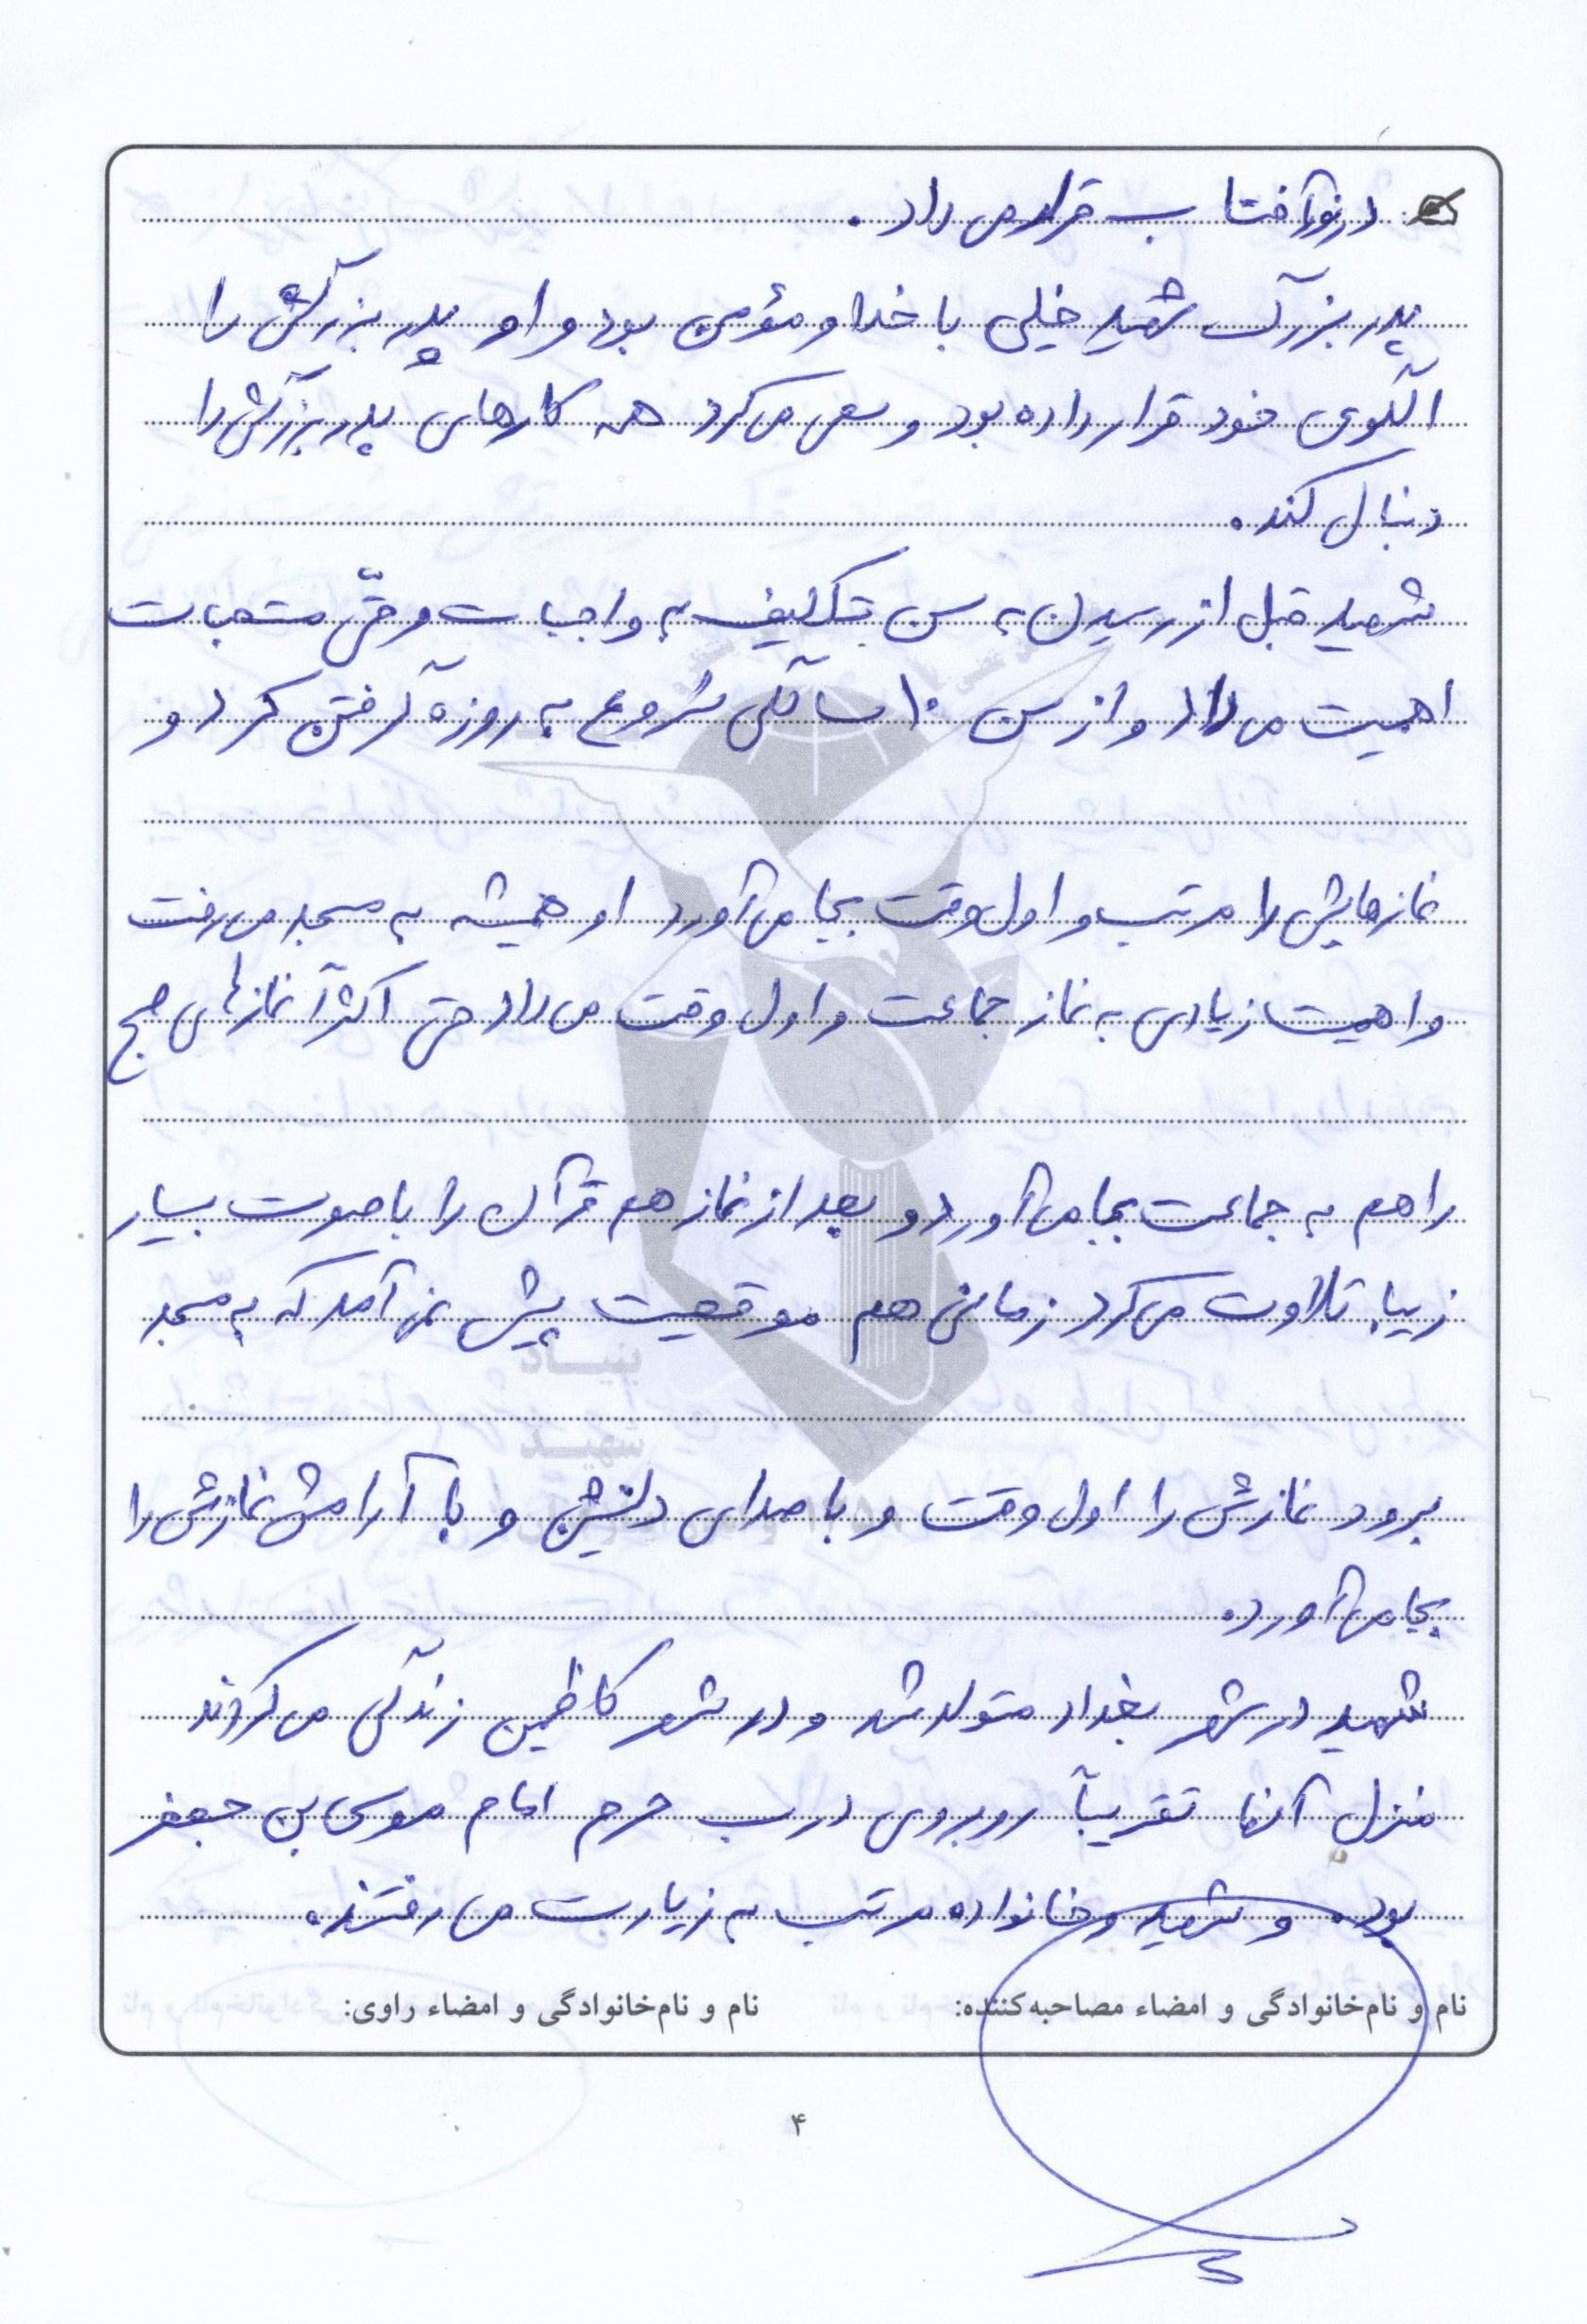 در نور آفتاب قرار می داد.
پدربزرگ شهید خیلی با خدا و مؤمن بود و او پدربزرگش را
الگوی خود قرار داده بود و سعی می کرد همه کارهای پدربزرگش را
دنبال کند.
شهید قبل از رسیدن به سن تکلیف به واجبات و حتّی مستحبات
اهمیت می داد و از سن ۱۰ سالگی شروع به روزه گرفتن کرد و
نمازهایش را مرتب و اول وقت بجا می آورد او همیشه به مسجد می رفت
و اهمیت زیادی به نماز جماعت و اول وقت می داد حتی اکثراً نمازهای صبح
را هم به جماعت بجا می آورد و بعد از نماز هم قرآن را با صوت بسیار
زیبا تلاوت می کرد زمانی هم موقعیت پیش نمی آمد که به مسجد
بنیاد
شهید
برود نمازش را اول وقت و با صدای دلنشین و با آرامش نمازش را
بجا می آورد.
شهید در شهر بغداد متولد شد و در شهر کاظمین زندگی می کردند
منزل آنها تقریباً روبروی درب حرم امام موسی بن جعفر
بود. و شهید و خانواده مرتب به زیارت می رفتند.
نام و نام‌خانوادگی و امضاء مصاحبه‌کننده: نام و نام‌خانوادگی و امضاء راوی:
۴